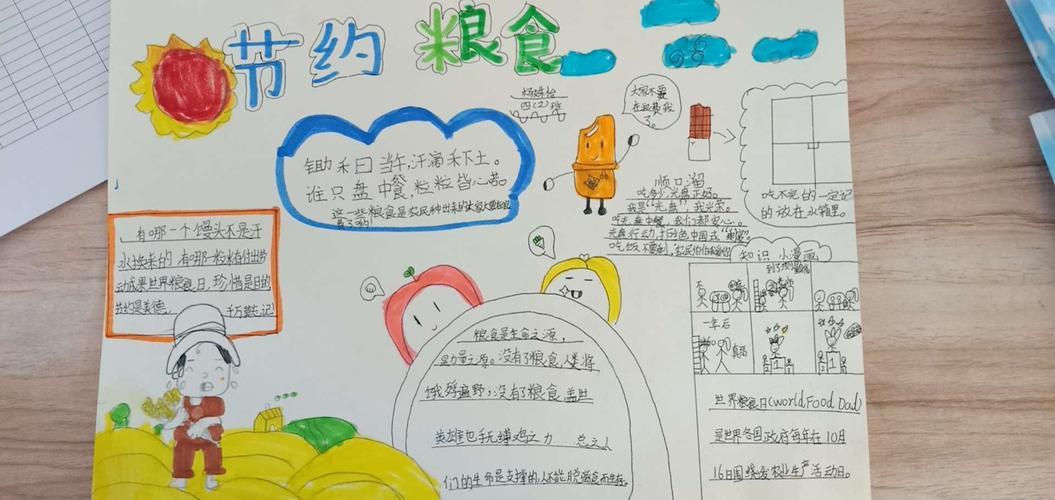 节约 粮食
四(2)班
大家不要
在浪费我
了。
锄禾日当午,汗滴禾下土。
谁只盘中餐,粒粒皆心苦。
这一些粮食是农民种出来的大家大
顺口溜
吃多少,光盘正好。
我是“光盘”,我光荣。
光盘行动,
吃饭不要剩,农民伯伯
吃不完的一定记
的放在冰箱里。
有哪一个馒头不是汗
水换来的,有哪一粒米有付出劳
动成果世界粮食日,珍惜是目的
节约是美德, 千万要记!
知识小漫画
一年后
真高
粮食是生命之源,
是力量之源。没有了粮食,人类将
饿殍遍野;没有了粮食,盖世
英雄也手无缚鸡之力……总之人
们的生命是支撑的,人不能脱离食而生存。
世界粮食日(World Food Dad)
是世界各国政府每年在10月
16日围绕发农业生产活动日。